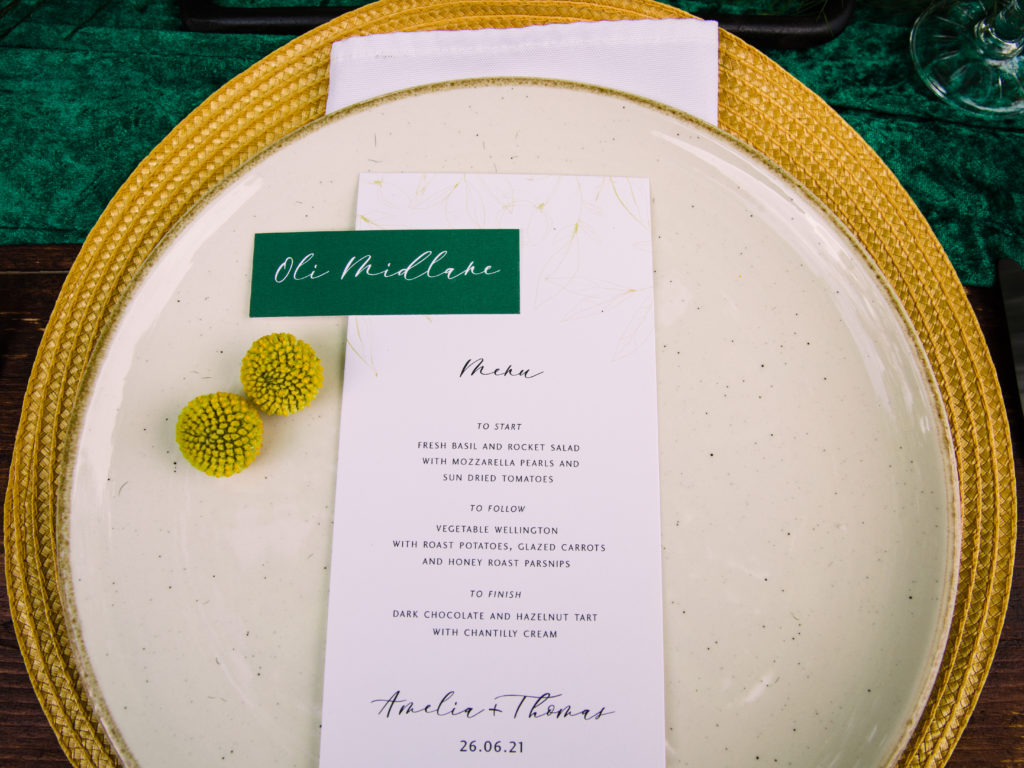 Oli Midlane
Menu
TO START
FRESH BASIL AND ROCKET SALAD
WITH MOZZARELLA PEARLS AND
SUN DRIED TOMATOES
TO FOLLOW
VEGETABLE WELLINGTON
WITH ROAST POTATOES, GLAZED CARROTS
AND HONEY ROAST PARSNIPS
TO FINISH
DARK CHOCOLATE AND HAZELNUT TART
WITH CHANTILLY CREAM
Amelia + Thomas
26.06.21